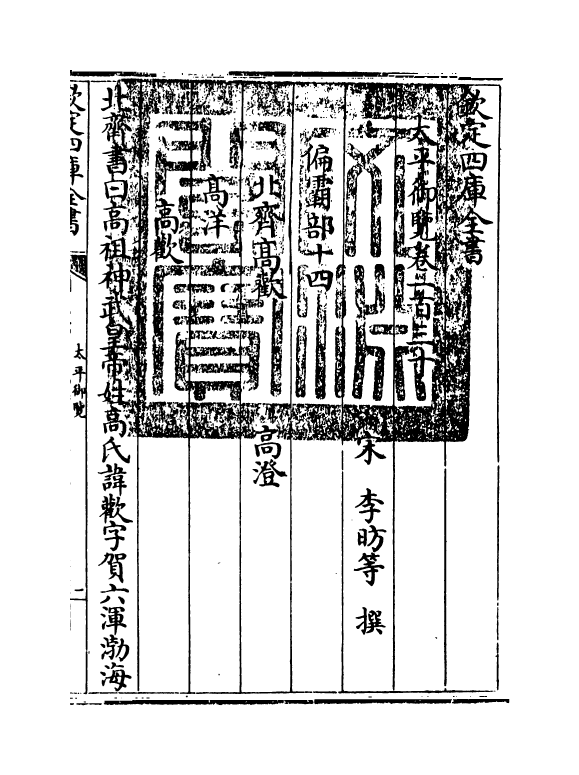 欽定四庫全書
太平御覽卷一百三十
宋 李昉等 撰
偏霸部十四
北齊高歡 高澄
高洋
高歡
北齊書曰高祖神武皇帝姓高氏諱歡字賀六渾渤海
欽定四庫全書
太平御覽